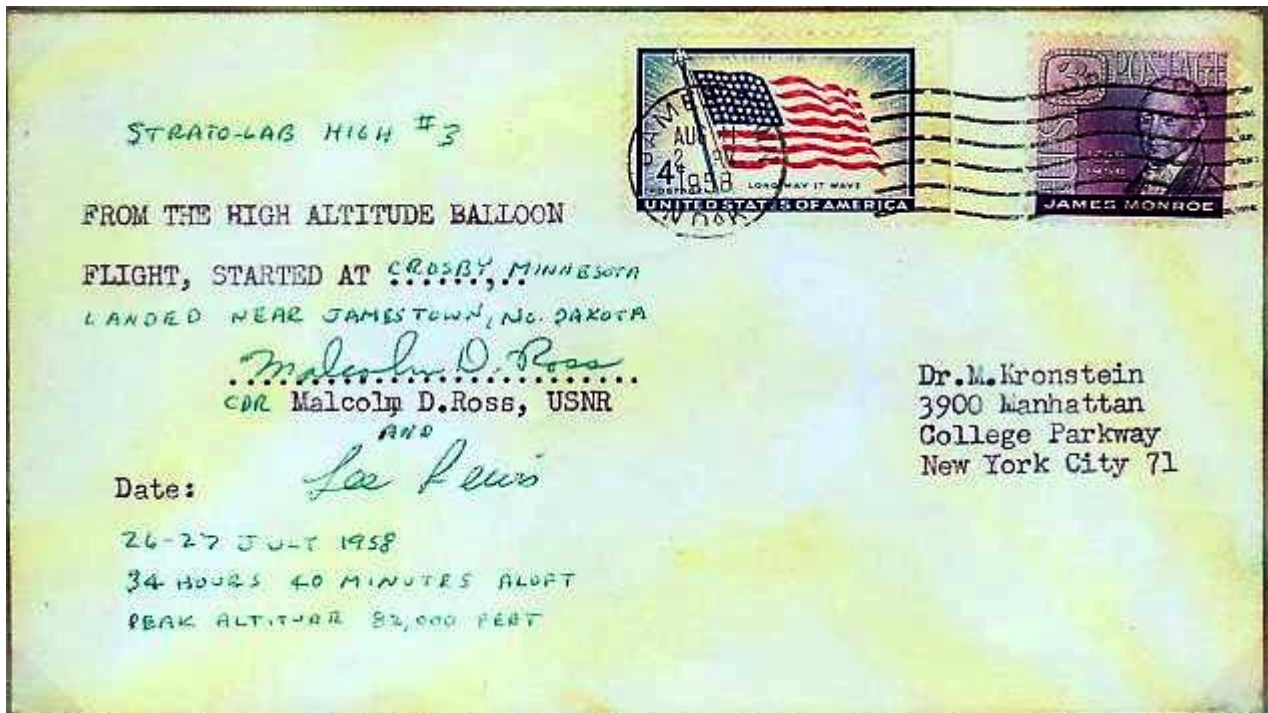 STRATO-LAB HIGH #3
FROM THE HIGH ALTITUDE BALLOON
FLIGHT, STARTED AT CROSBY, MINNESOTA
LANDED NEAR JAMESTOWN, NO. DAKOTA
Malcolm D. Ross
CDR Malcolm D.Ross, USNR
AND
Lee Lewis
Date:
26-27 JULY 1958
34 HOURS 40 MINUTES ALOFT
PEAK ALTITUDE 82,000 FEET
AUG 11
1958
N. DAK
4¢
LONG MAY IT WAVE
UNITED STATES OF AMERICA
3¢ POSTAGE
U.S.
JAMES MONROE
Dr.M.Kronstein
3900 Manhattan
College Parkway
New York City 71